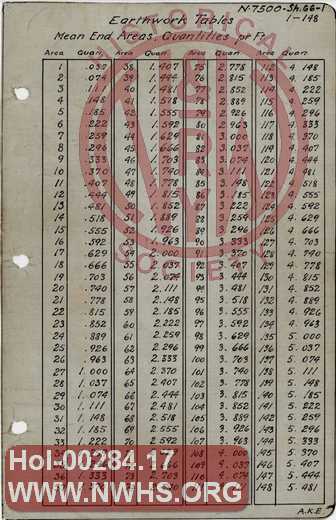 N-7500-Sh.66-1
1-148
Earthwork Tables
Mean End Areas, Quantities per Ft.
Area Quan. Area Quan. Area Quan. Area Quan.
1 .037 38 1.407 75 2.778 112 4.148
2 .074 39 1.444 76 2.815 113 4.185
3 .111 40 1.481 77 2.852 114 4.222
4 .148 41 1.518 78 2.889 115 4.259
5 .185 42 1.555 79 2.926 116 4.296
6 .222 43 1.592 80 2.963 117 4.333
7 .259 44 1.629 81 3.000 118 4.370
8 .296 45 1.666 82 3.037 119 4.407
9 .333 46 1.703 83 3.074 120 4.444
10 .370 47 1.740 84 3.111 121 4.481
11 .407 48 1.778 85 3.148 122 4.518
12 .444 49 1.815 86 3.185 123 4.555
13 .481 50 1.852 87 3.222 124 4.592
14 .518 51 1.889 88 3.259 125 4.629
15 .555 52 1.926 89 3.296 126 4.666
16 .592 53 1.963 90 3.333 127 4.703
17 .629 54 2.000 91 3.370 128 4.740
18 .666 55 2.037 92 3.407 129 4.778
19 .703 56 2.074 93 3.444 130 4.815
20 .740 57 2.111 94 3.481 131 4.852
21 .778 58 2.148 95 3.518 132 4.889
22 .815 59 2.185 96 3.555 133 4.926
23 .852 60 2.222 97 3.592 134 4.963
24 .889 61 2.259 98 3.629 135 5.000
25 .926 62 2.296 99 3.666 136 5.037
26 .963 63 2.333 100 3.703 137 5.074
27 1.000 64 2.370 101 3.740 138 5.111
28 1.037 65 2.407 102 3.778 139 5.148
29 1.074 66 2.444 103 3.815 140 5.185
30 1.111 67 2.481 104 3.852 141 5.222
31 1.148 68 2.518 105 3.889 142 5.259
32 1.185 69 2.555 106 3.926 143 5.296
33 1.222 70 2.592 107 3.963 144 5.333
108 4.000 145 5.370
109 4.037 146 5.407
36 1.333 110 4.074 147 5.444
148 5.481
A.K.E.
HISTORICAL
SOCIETY
Hol-00284.17
www.NWHS.ORG